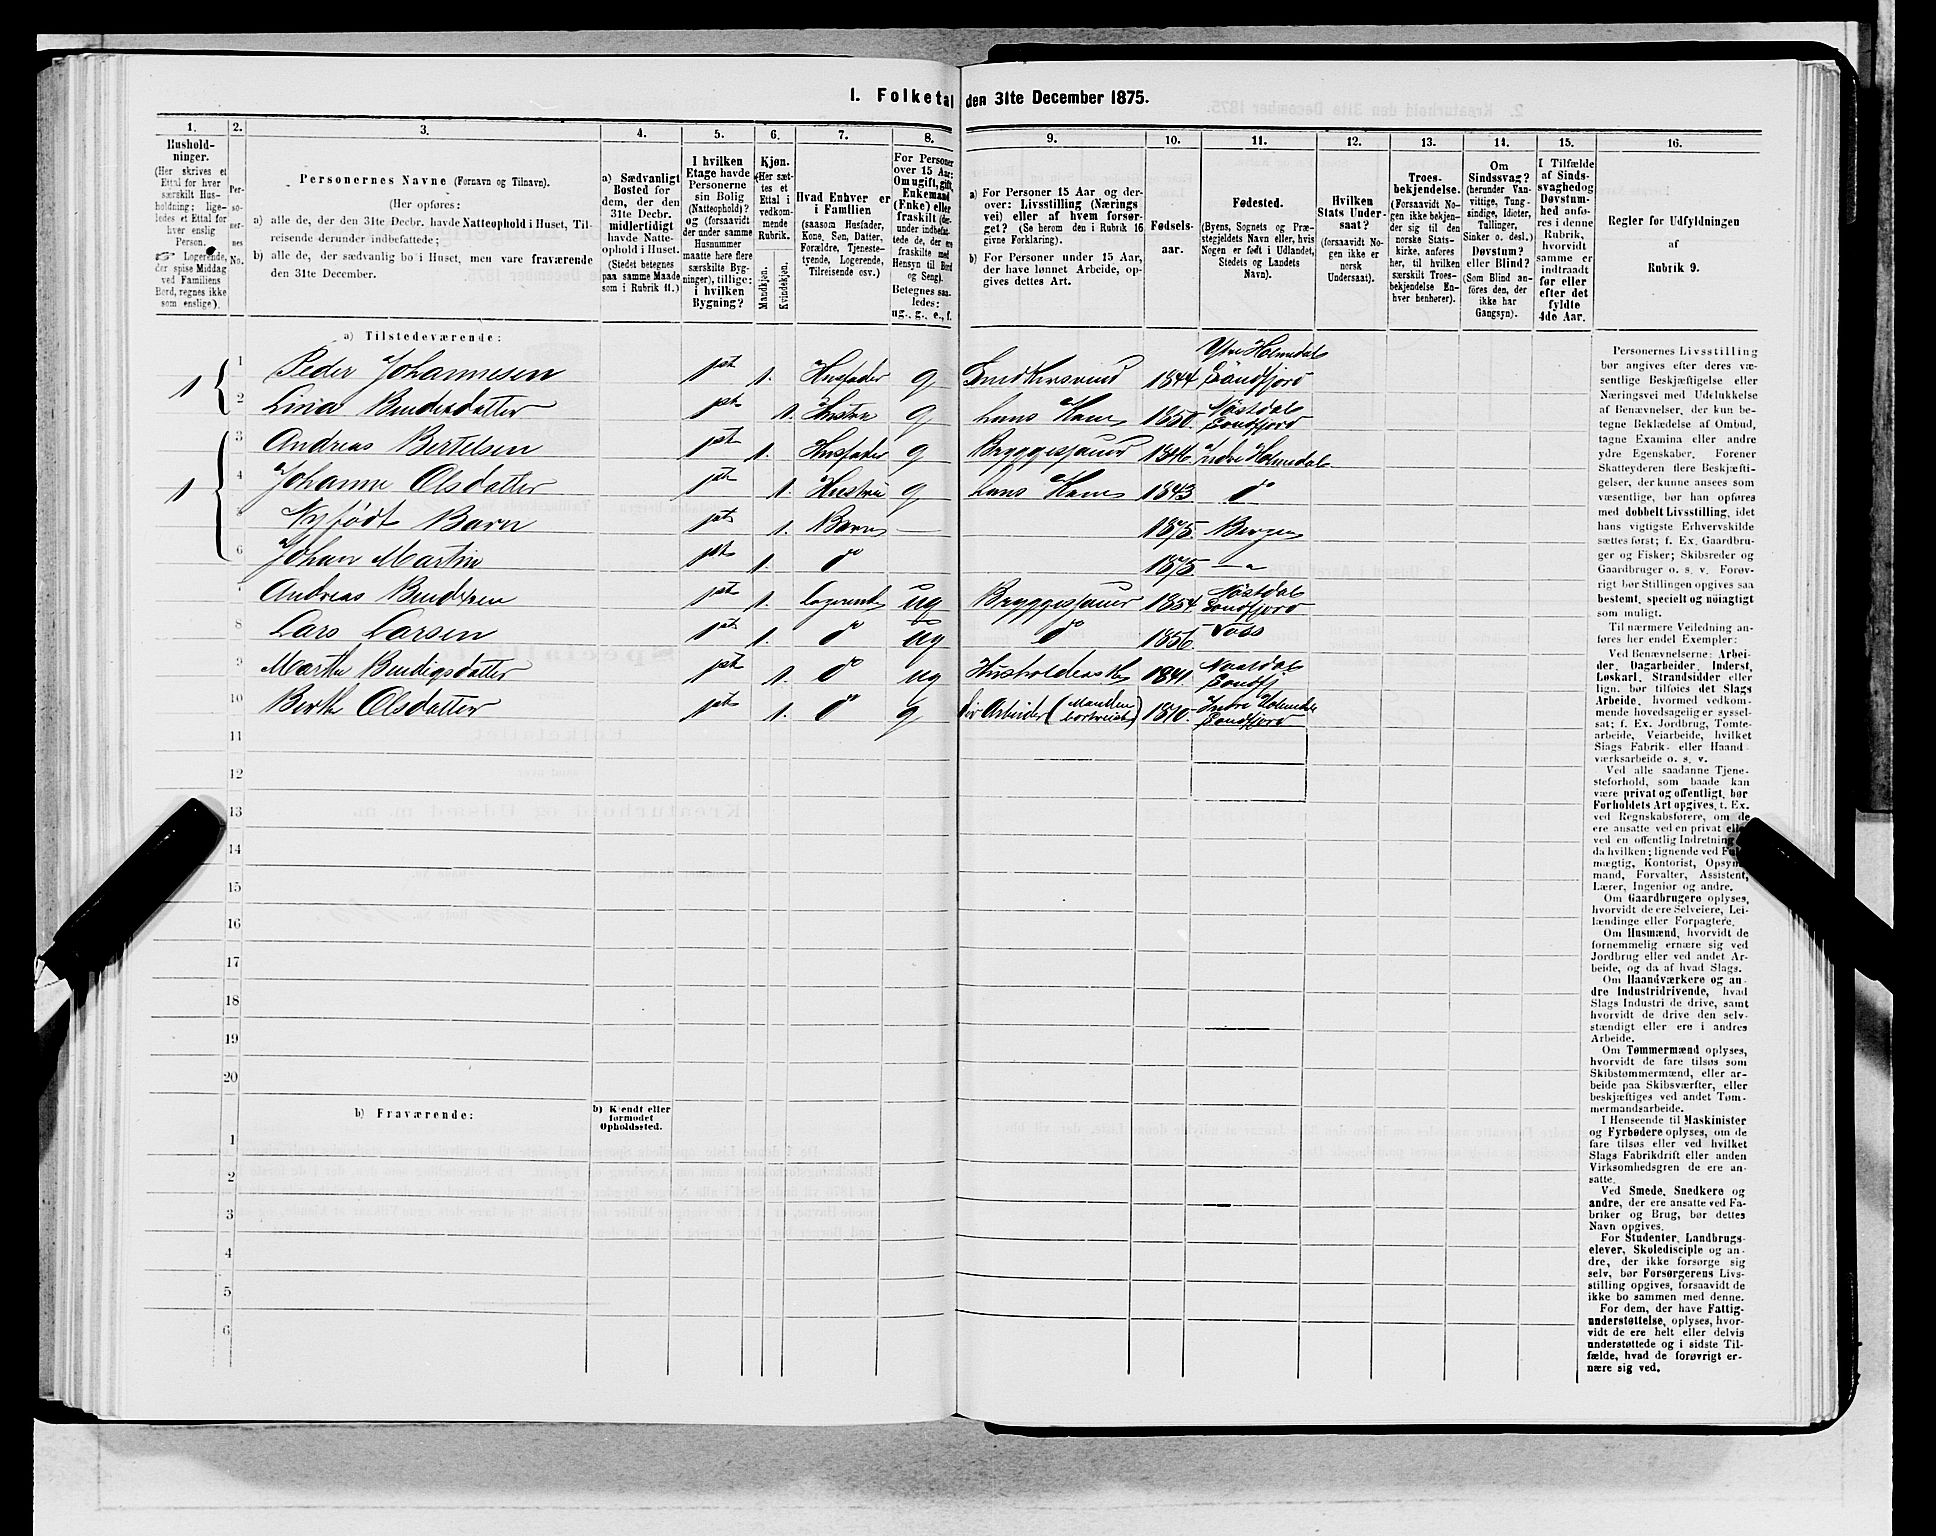 1. Folketal den 31te December 1875.
1. 2. 3. 4. 5. 6. 7. 8. 9. 10. 11. 12. 13. 14. 15. 16.
Husholdninger.
(Her skrives et
Ettal for hver
særskilt Husholdning;
ligeledes et Ettal for
hver enslig
Person.
Logerende,
der spise Middag
ved Familiens
Bord, regnes ikke
som enslige).
Personernes No.
Personernes Navne (Fornavn og Tilnavn).
(Her opføres:
a) alle de, der den 31te Decbr. havde Natteophold i Huset, Tilreisende
derunder indbefattede;
b) alle de, der sædvanlig bo i Huset, men vare fraværende
den 31te December.
a) Sædvanligt
Bosted for
dem, der den
31te Decbr.
midlertidigt
havde Natteophold
i Huset.
(Stedet betegnes
paa samme Maade
som i Rubrik 11.)
I hvilken
Etage havde
Personerne
sin Bolig
(Natteophold)?
og (forsaavidt
der under samme
Husnummer
maatte høre flere
særskilte Bygninger),
tillige:
i hvilken
Bygning?
Kjøn.
(Her sættes
et
Ettal i
vedkommende
Rubrik.
Mandkjøn.
Kvindekjøn.
Hvad Enhver er
i Familien
(saasom Husfader,
Kone, Søn, Datter,
Forældre, Tjenestetyende,
Logerende,
Tilreisende osv.)
For Personer
over 15 Aar:
Om ugift, gift,
Enkemand
(Enke) eller
fraskilt (derunder
indbefattede
de, der ere
fraskilte med
Hensyn til Bord
og Seng).
Betegnes saaledes:
ug., g., e., f.
a) For Personer 15 Aar og derover:
Livsstilling (Næringsvei)
eller af hvem forsørget?
(Se herom den i Rubrik 16
givne Forklaring).
b) For Personer under 15 Aar,
der have lønnet Arbeide, opgives
dettes Art.
Fødselsaar.
Fødested.
(Byens, Sognets og Præstegjeldets
Navn eller, hvis
Nogen er født i Udlandet,
Stedets og Landets
Navn).
Hvilken
Stats Undersaat?
(forsaavidt Nogen
ikke er
norsk
Undersaat).
Troesbekjendelse.
(Forsaavidt Nogen
ikke bekjender
sig til den
norske Statskirke,
anføres
her, til hvilken
særskilt Troesbekjendelse
Enhver
henhører).
Om
Sindssvag?
(herunder Vanvittige,
Tungsindige,
Idioter,
Tullinger,
Sinker o. desl.)
Døvstum?
eller Blind?
(Som Blind anføres
den, der
ikke har
Gangsyn).
I Tilfælde
af Sindssvaghed
og
Døvstumhed
anføres
i denne
Rubrik,
hvorvidt
samme er
indtraadt
før eller
efter det
fyldte
4de Aar.
Regler for Udfyldningen
af
Rubrik 9.
a) Tilstedeværende:
1 1 Peder Johannesen 1ste 1. Husfader g 1844 Ytre Holmedal Søndfjord
2 Lina Bendixdatter 1ste 1. Hustru g hans Kone 1850. Søndfjord
1 3 Andreas Bertelsen 1ste 1. Husfader g Bryggesjauer 1846 Indre Holmedal
4 Johanne Olsdatter 1ste 1. Hustru g hans Kone 1843 do
5 Nyfødt Barn 1ste 1. Barn — 1875 Bergen
6 Johan Martin 1ste 1. do 1875 —"—
7 Andreas 1ste 1. Logerende ug Bryggesjauer 1854 Søndfjord
8 Lars Larsen 1ste 1. do ug do 1856 Voss
9 Marthe Bendigsdatter 1ste 1. do ug 1841. Søndfj
10 Berthe Olsdatter 1ste 1. do g Arbeider (Manden bortreist) 1840. Indre Holmedal Søndfjord
11
12
13
14
15
16
17
18
19
20
b) Fraværende:
b) Kjendt eller
formodet
Opholdssted.
1
2
3
4
5
6
Personernes Livsstilling
bør angives efter deres væsentlige
Beskjæftigelse eller
Næringsvei med Udelukkelse
af Benævnelser, der kun betegne
Beklædelse af Ombud,
tagne Examina eller andre
ydre Egenskaber. Forener
Skatteyderen flere Beskjæftigelser,
der kunne ansees som
væsentlige, bør han opføres
med dobbelt Livsstilling, idet
hans vigtigste Erhvervskilde
sættes først; f. Ex. Gaardbruger
og Fisker; Skibsreder og
Gaardbruger o. s. v. Forøvrigt
bør Stillingen opgives saa
bestemt, specielt og nøiagtigt
som muligt.
Til nærmere Veiledning anføres
her endel Exempler:
Ved Benævnelserne: Arbeider,
Dagarbeider, Inderst,
Løskarl, Strandsidder eller
lign. bør tilføies det Slags
Arbeide, hvormed vedkommende
hovedsagelig er sysselsat;
f. Ex. Jordbrug, Tomtearbeide,
Veiarbeide, hvilket
Slags Fabrik- eller Haandværksarbeide
o. s. v.
Ved alle saadanne Tjenesteforhold,
som baade kan
være privat og offentligt, bør
Forholdets Art opgives, t. Ex.
ved Regnskabsførere, om de
ere ansatte ved en privat eller
ved en offentlig Indretning
da hvilken; lignende ved Fuldmægtig,
Kontorist, Opsynsmand,
Forvalter, Assistent,
Lærer, Ingeniør og andre.
Om Gaardbrugere oplyses,
hvorvidt de ere Selveiere, Leilændinge
eller Forpagtere.
Om Husmænd, hvorvidt de
fornemmelig ernære sig ved
Jordbrug eller ved andet Arbeide,
og da af hvad Slags.
Om Haandværkere og andre
Industridrivende, hvad
Slags Industri de drive, samt
hvorvidt de drive den selvstændigt
eller ere i andres
Arbeide.
Om Tømmermænd oplyses,
hvorvidt de fare tilsøs som
Skibstømmermænd, eller arbeide
paa Skibsværfter, eller
beskjæftiges ved andet Tømmermandsarbeide.
I Henseende til Maskinister
og Fyrbødere oplyses, om de
fare tilsøs eller ved hvilket
Slags Fabrikdrift eller anden
Virksomhedsgren de ere ansatte.
Ved Smede, Snedkere og
andre, der ere ansatte ved Fabriker
og Brug, bør dettes
Navn opgives.
For Studenter, Landbrugselever,
Skoledisciple og andre,
der ikke forsørge sig
selv, bør Forsørgerens Livsstilling
opgives, forsaavidt de
ikke bo sammen med denne.
For dem, der have Fattigunderstøttelse,
oplyses, hvorvidt
de ere helt eller delvis
understøttede og i sidste Tilfælde,
hvad de forøvrigt ernære
sig ved.